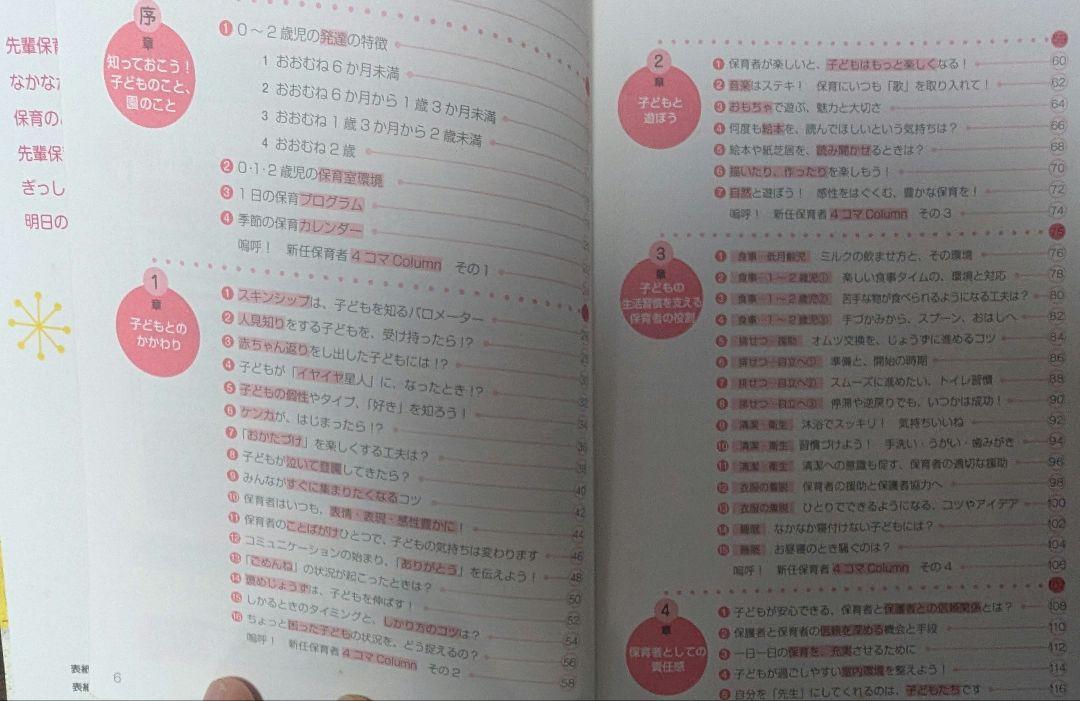 先輩保育
なかなか
保育の
先輩保
ぎっし
明日の
表紙
表紙
序章
知っておこう！
子どものこと、
園のこと
1 0～2歳児の発達の特徴
1 おおむね6か月未満
2 おおむね6か月から1歳3か月未満
3 おおむね1歳3か月から2歳未満
4 おおむね2歳
2 0・1・2歳児の保育室環境
3 1日の保育プログラム
4 季節の保育カレンダー
嗚呼！ 新任保育者4コマColumn その1
1章
子どもとの
かかわり
1 スキンシップは、子どもを知るバロメーター
2 人見知りをする子どもを、受け持ったら!?
3 赤ちゃん返りをし出した子どもには!?
4 子どもが「イヤイヤ星人」に、なったとき!?
5 子どもの個性やタイプ、「好き」を知ろう！
6 ケンカが、はじまったら!? 34
7 「おかたづけ」を楽しくする工夫は？ 36
8 子どもが泣いて登園してきたら？ 38
9 みんながすぐに集まりたくなるコツ 40
10 保育者はいつも、表情・表現・感性豊かに！ 42
11 保育者のことばがけひとつで、子どもの気持ちは変わります 44
12 コミュニケーションの始まり、「ありがとう」を伝えよう！ 46
13 「ごめんね」の状況が起こったときは？ 48
14 褒めじょうずは、子どもを伸ばす！ 50
15 しかるときのタイミングと、しかり方のコツは？ 52
16 ちょっと困った子どもの状況を、どう捉えるの？ 54
嗚呼！ 新任保育者4コマColumn その2 56
58
6
2章
子どもと
遊ぼう
59
1 保育者が楽しいと、子どもはもっと楽しくなる！ 60
2 音楽はステキ！ 保育にいつも「歌」を取り入れて！ 62
3 おもちゃで遊ぶ、魅力と大切さ 64
4 何度も絵本を、読んでほしいという気持ちは？ 66
5 絵本や紙芝居を、読み聞かせるときは？ 68
6 描いたり、作ったりを楽しもう！ 70
7 自然と遊ぼう！ 感性をはぐくむ、豊かな保育を！ 72
嗚呼！ 新任保育者4コマColumn その3 74
3章
子どもの
生活習慣を支える
保育者の役割
75
1 食事…低月齢児 ミルクの飲ませ方と、その環境 76
2 食事…1～2歳児① 楽しい食事タイムの、環境と対応 78
3 食事…1～2歳児② 苦手な物が食べられるようになる工夫は？ 80
4 食事…1～2歳児③ 手づかみから、スプーン、おはしへ 82
5 排せつ…援助 オムツ交換を、じょうずに進めるコツ 84
6 排せつ…自立へ① 準備と、開始の時期 86
7 排せつ…自立へ② スムーズに進めたい、トイレ習慣 88
8 排せつ…自立へ③ 停滞や逆戻りでも、いつかは成功！ 90
9 清潔・衛生 沐浴でスッキリ！ 気持ちいいね 92
10 清潔・衛生 習慣づけよう！ 手洗い・うがい・歯みがき 94
11 清潔・衛生 清潔への意識も促す、保育者の適切な援助 96
12 衣服の着脱 保育者の援助と保護者協力へ 98
13 衣服の着脱 ひとりでできるようになる、コツやアイデア 100
14 睡眠 なかなか寝付けない子どもには？ 102
15 睡眠 お昼寝のとき騒ぐのは？ 104
嗚呼！ 新任保育者4コマColumn その4 106
4章
保育者としての
責任感
107
1 子どもが安心できる、保育者と保護者との信頼関係とは？ 108
2 保護者と保育者の信頼を深める機会と手段 110
3 一日一日の保育を、充実させるために 112
4 子どもが過ごしやすい室内環境を整えよう！ 114
5 自分を「先生」にしてくれるのは、子どもたちです 116